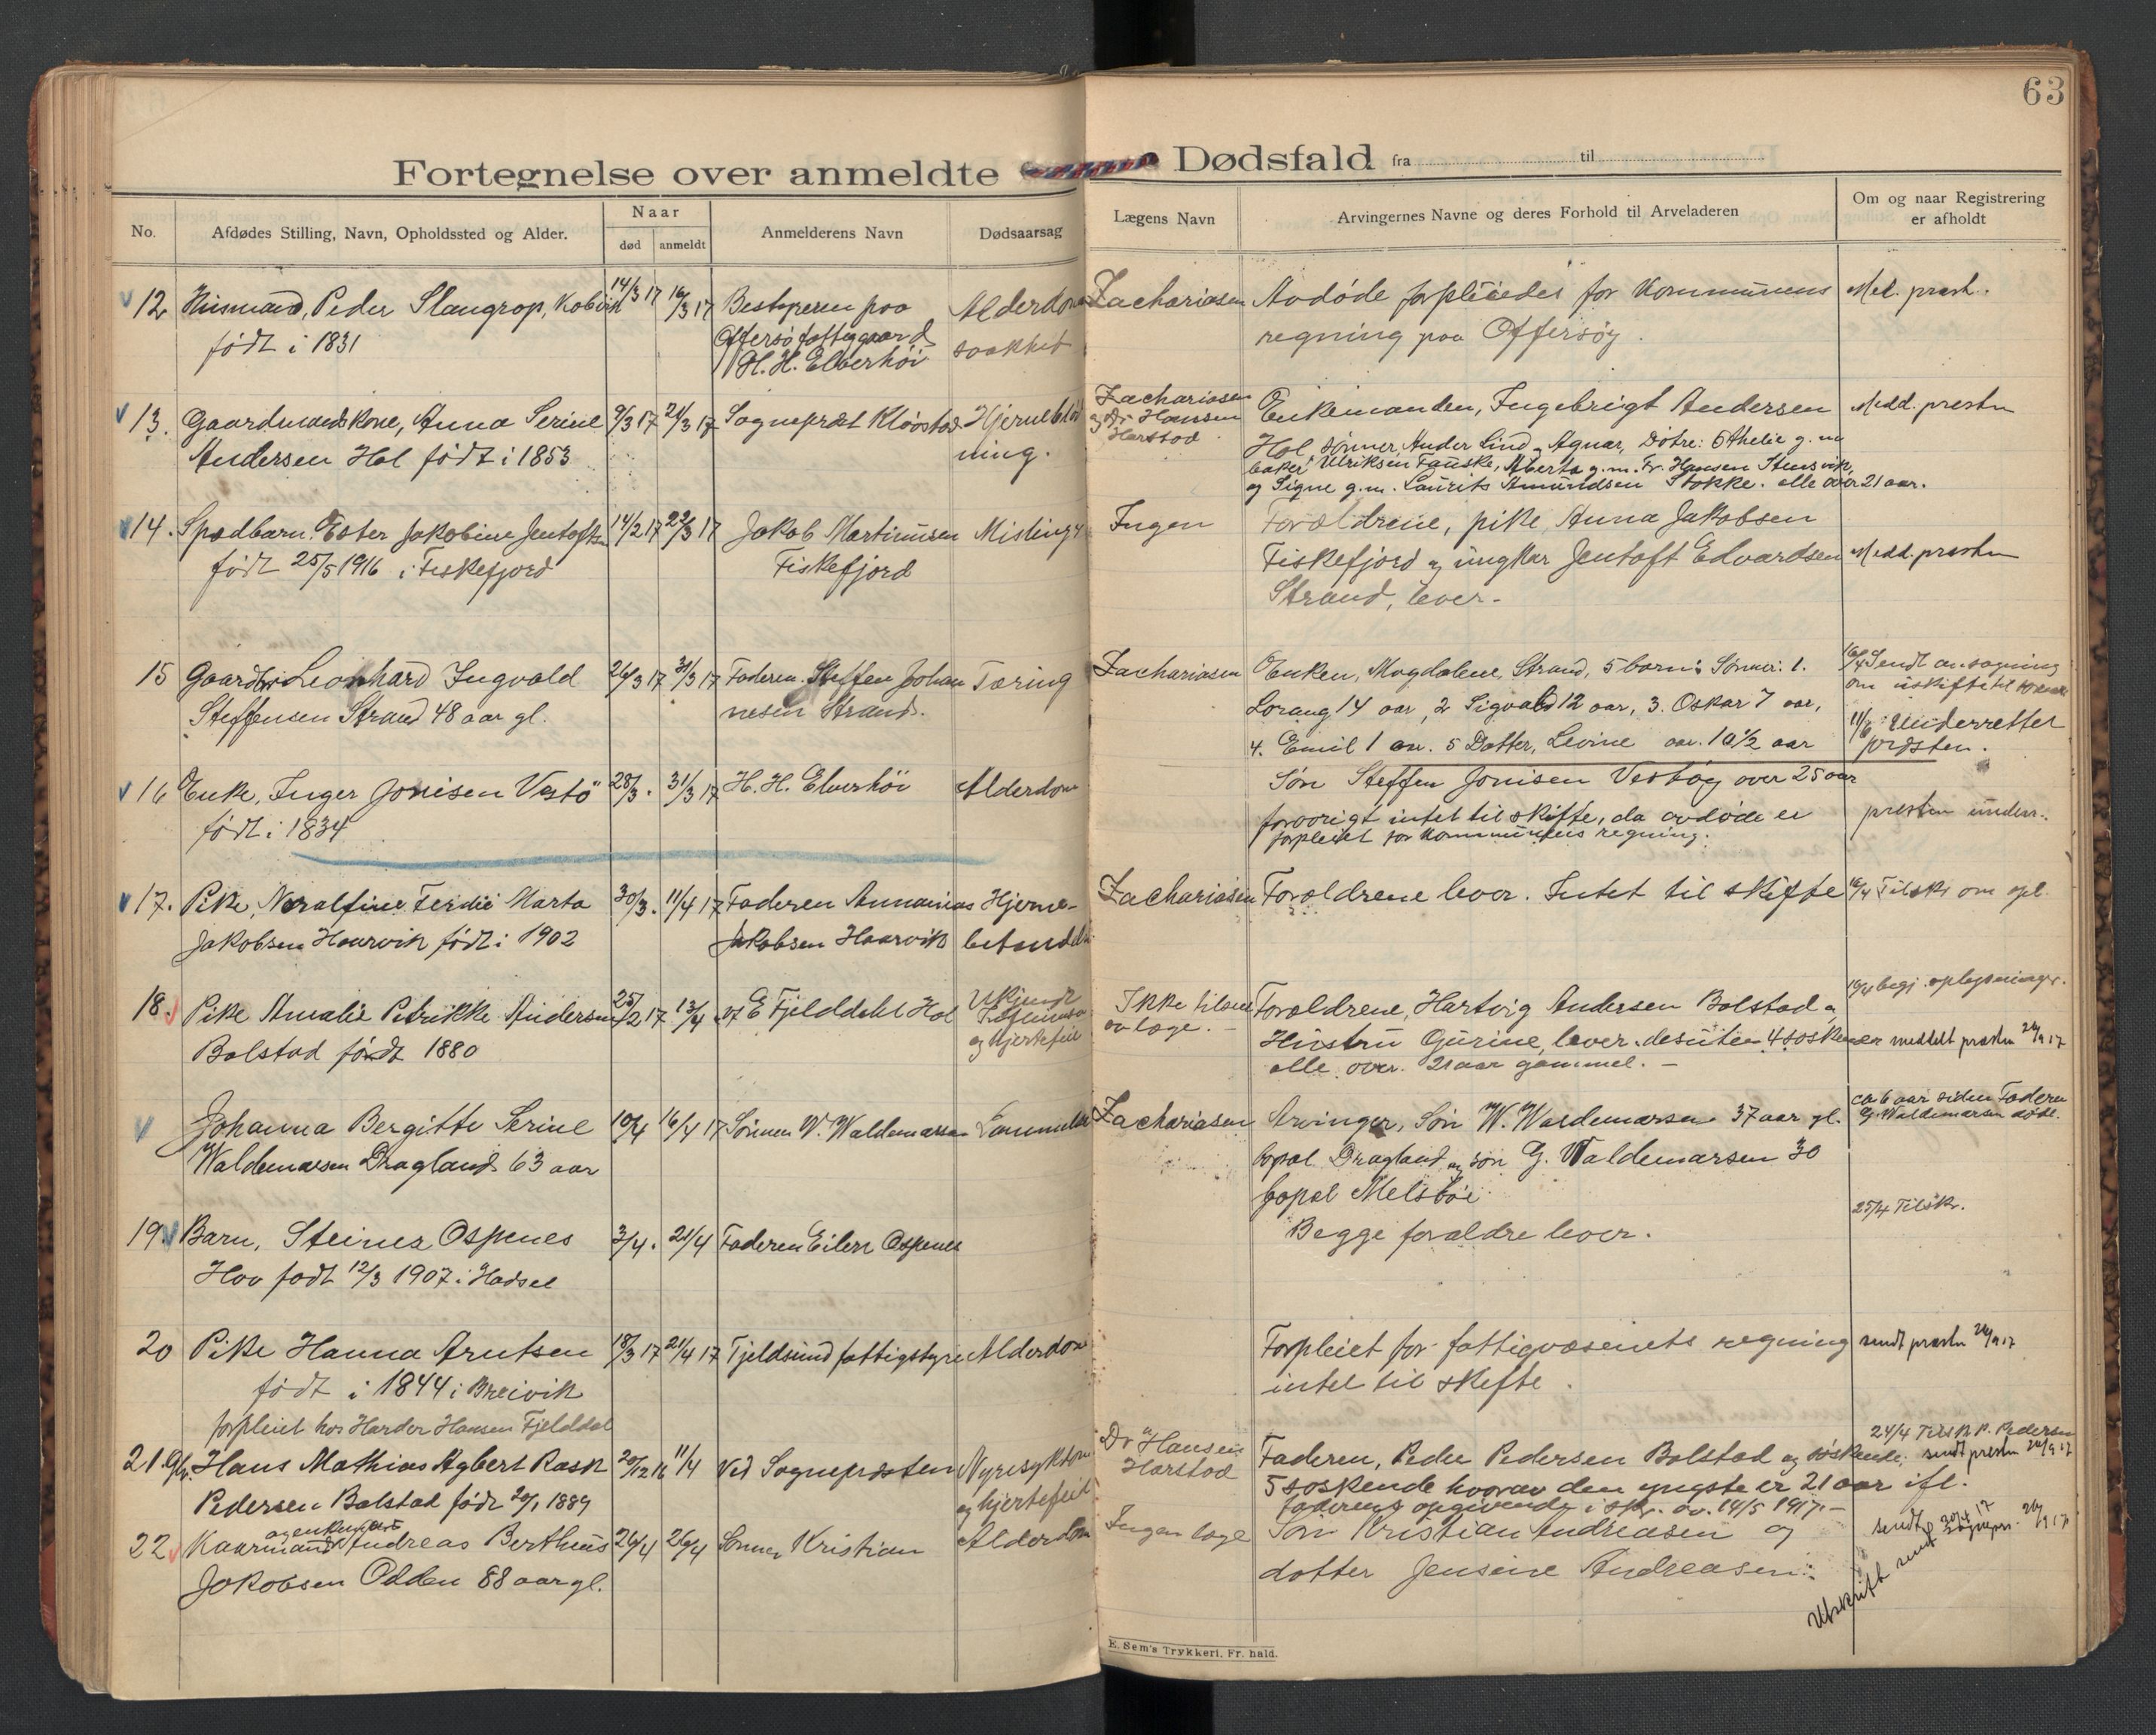 63
Fortegnelse over anmeldte Dødsfald fra til
No.
Afdødes Stilling, Navn, Opholdssted og Alder.
Naar
død
anmeldt
Anmelderens Navn
Dødsaarsag
Lægens Navn
Arvingernes Navne og deres Forhold til Arveladeren
Om og naar Registrering
er afholdt
12 Husmand, Peder Slangrop, Kobvik 14/3 17 16/3 17 Bestyreren paa Alderdoms Zachariasen Avdøde forpleiedes for Kommunens Med. prest.
født i 1831 Offersø fattiggaard svakhet regning paa Offersøy.
H. H. Elverhöi
13. Gaardmandskone, Anna Serine 9/3 17 21/3 17 Sogneprest Klövstad Hjerneblød Zachariasen Enkemanden, Ingebrigt Andersen Medd. presten
Andersen Hol født i 1853 ning. og Dr Hansen Hol, sønner, Ander Lind og Agnar, Døtre: Othelie g. m.
Harstad. Ulriksen Fauske, Alberta g. m. Fr. Hansen Stensvik,
og Signe g. m. Laurits Amundsen Stokke. alle over 21 aar.
14. Spædbarn Ester Jakobine Jentoftsen 14/2 17 22/3 17 Jakob Martinusen Mislinger Ingen Forældrene, pike Anna Jakobsen
født 25/5 1916 i Fiskefjord Fiskefjord Fiskefjord og ungkar Jentoft Edvardsen Medd. presten
Strand, lever.
15 Gaardbr. Leonhard Ingvald 26/3 17 31/3 17 Faderen Steffen Johan Tæring Zachariasen Enken, Magdalene Strand, 5 barn: Sønner: 1. 16/4 Sendt ansøgning
Steffensen Strand 48 aar gl. nesen Strand. Lorang 14 aar, 2 Sigvald 12 aar, 3. Oskar 7 aar, om uskifte til
4. Emil 1 aar. 5 Datter, Levine 10½ aar 11/6 Underrettet
presten.
16 Enke, Inger Jonisen Vestö 28/3. 31/3 17 H. H. Elverhöi Alderdom Søn Steffen Jonisen Vestbøg over 25 aar
født i 1834 forøvrigt intet til skifte, da avdøde er presten underr.
forpleiet for Kommunens regning.
17. Pike, Noralfine Ferdie Marta 30/3. 11/4 17 Faderen Annanias Hjerne- Zachariasen Forældrene lever. Intet til skifte 16/4 Tilskr om opl.
Jakobsen Haarvik født i 1902 Jakobsen Haarvik betændelse
18. Pike Amalie Petrikke Andersen 25/2 17 13/4 v/ E Fjelddal Hol Ukjendt Ikke tilseet Forældrene, Hartvig Andersen Bolstad og 16/4 begj. oplysninger.
Bolstad født 1880 og Hjertefeil av læge. Hustru Gurine, lever. desuten 4 søskener meddelt presten 26/9 17
alle over 21 aar gammel.
Johanna Bergitte Serine 10/4 16/4 17 Sønnen W. Waldemarsen Zachariasen Arvinger, Søn W. Waldemarsen 37 aar gl. ca 6 aar siden Faderen
Waldemarsen Dragland 63 aar bopæl Dragland og søn G. Waldemarsen 30 G. Waldemarsen døde.
bopæl Melsböi.
19 Barn, Steinar Ospenes 3/4. 21/4 Faderen Eilert Ospenes Begge forældre lever. 25/4 Tilskr.
Hov født 12/3 1907 i Hadsel
20 Pike Hanna Arntsen 18/3 17 21/4 17 Tjeldsund fattigstyre Alderdom Forpleiet for fattigvæsenets regning sendt presten 26/9 17
født i 1844 i Breivik intet til skifte.
forpleiet hos Harder Hansen Fjelddal
21. Hans Mathias Agbert Rask 20/12 16 11/4 Ved Sognepresten Nyresykdom Dr Hansen Faderen, Peder Pedersen Bolstad og søskende; 24/4 Tilskr P. Pedersen
Pedersen Bolstad født 20/1 1889 og hjertefeil Harstad 5 søskende hvorav den yngste er 21 aar ifl. sendt presten 26/9 17
faderens opgivende i skr. av 14/5 1917.
22 Kaarmand og enkemand Andreas Bertheus 26/4 26/4 Sønnen Kristian Alderdom Ingen læge Søn Kristian Andreasen og sendt sognepr. 26/9 17
Jakobsen Odden 88 aar gl. datter Jensine Andreasen.
Utskrift sendt
E. Sem's Trykkeri, Fr. hald.